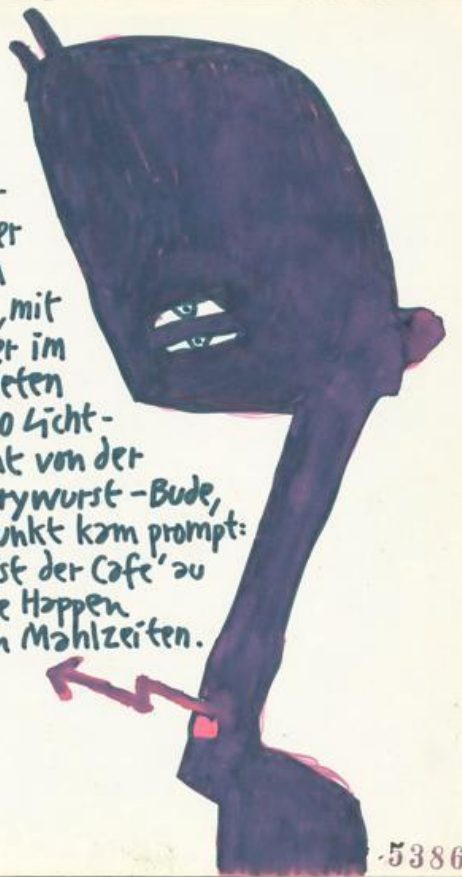 er
, mit
er im
eten
0 Licht-
nt von der
rywurst-Bude,
unkt kam prompt:
st der Café au
e Happen
n Mahlzeiten.
5386